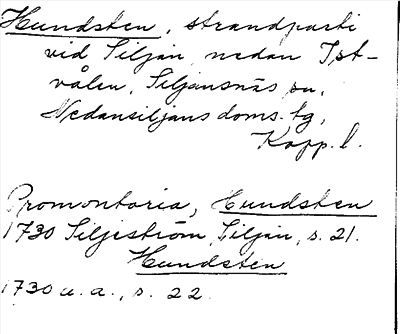 Hundsten, strandparti
vid Siljan nedan Ist-
vålen, Siljansnäs sn,
Nedansiljans doms. tg,
Kopp. l.
Promontoria, Hundsten
1730 Siljeström, Siljan, s. 21.
Hundsten
1730 u. a., s. 22.